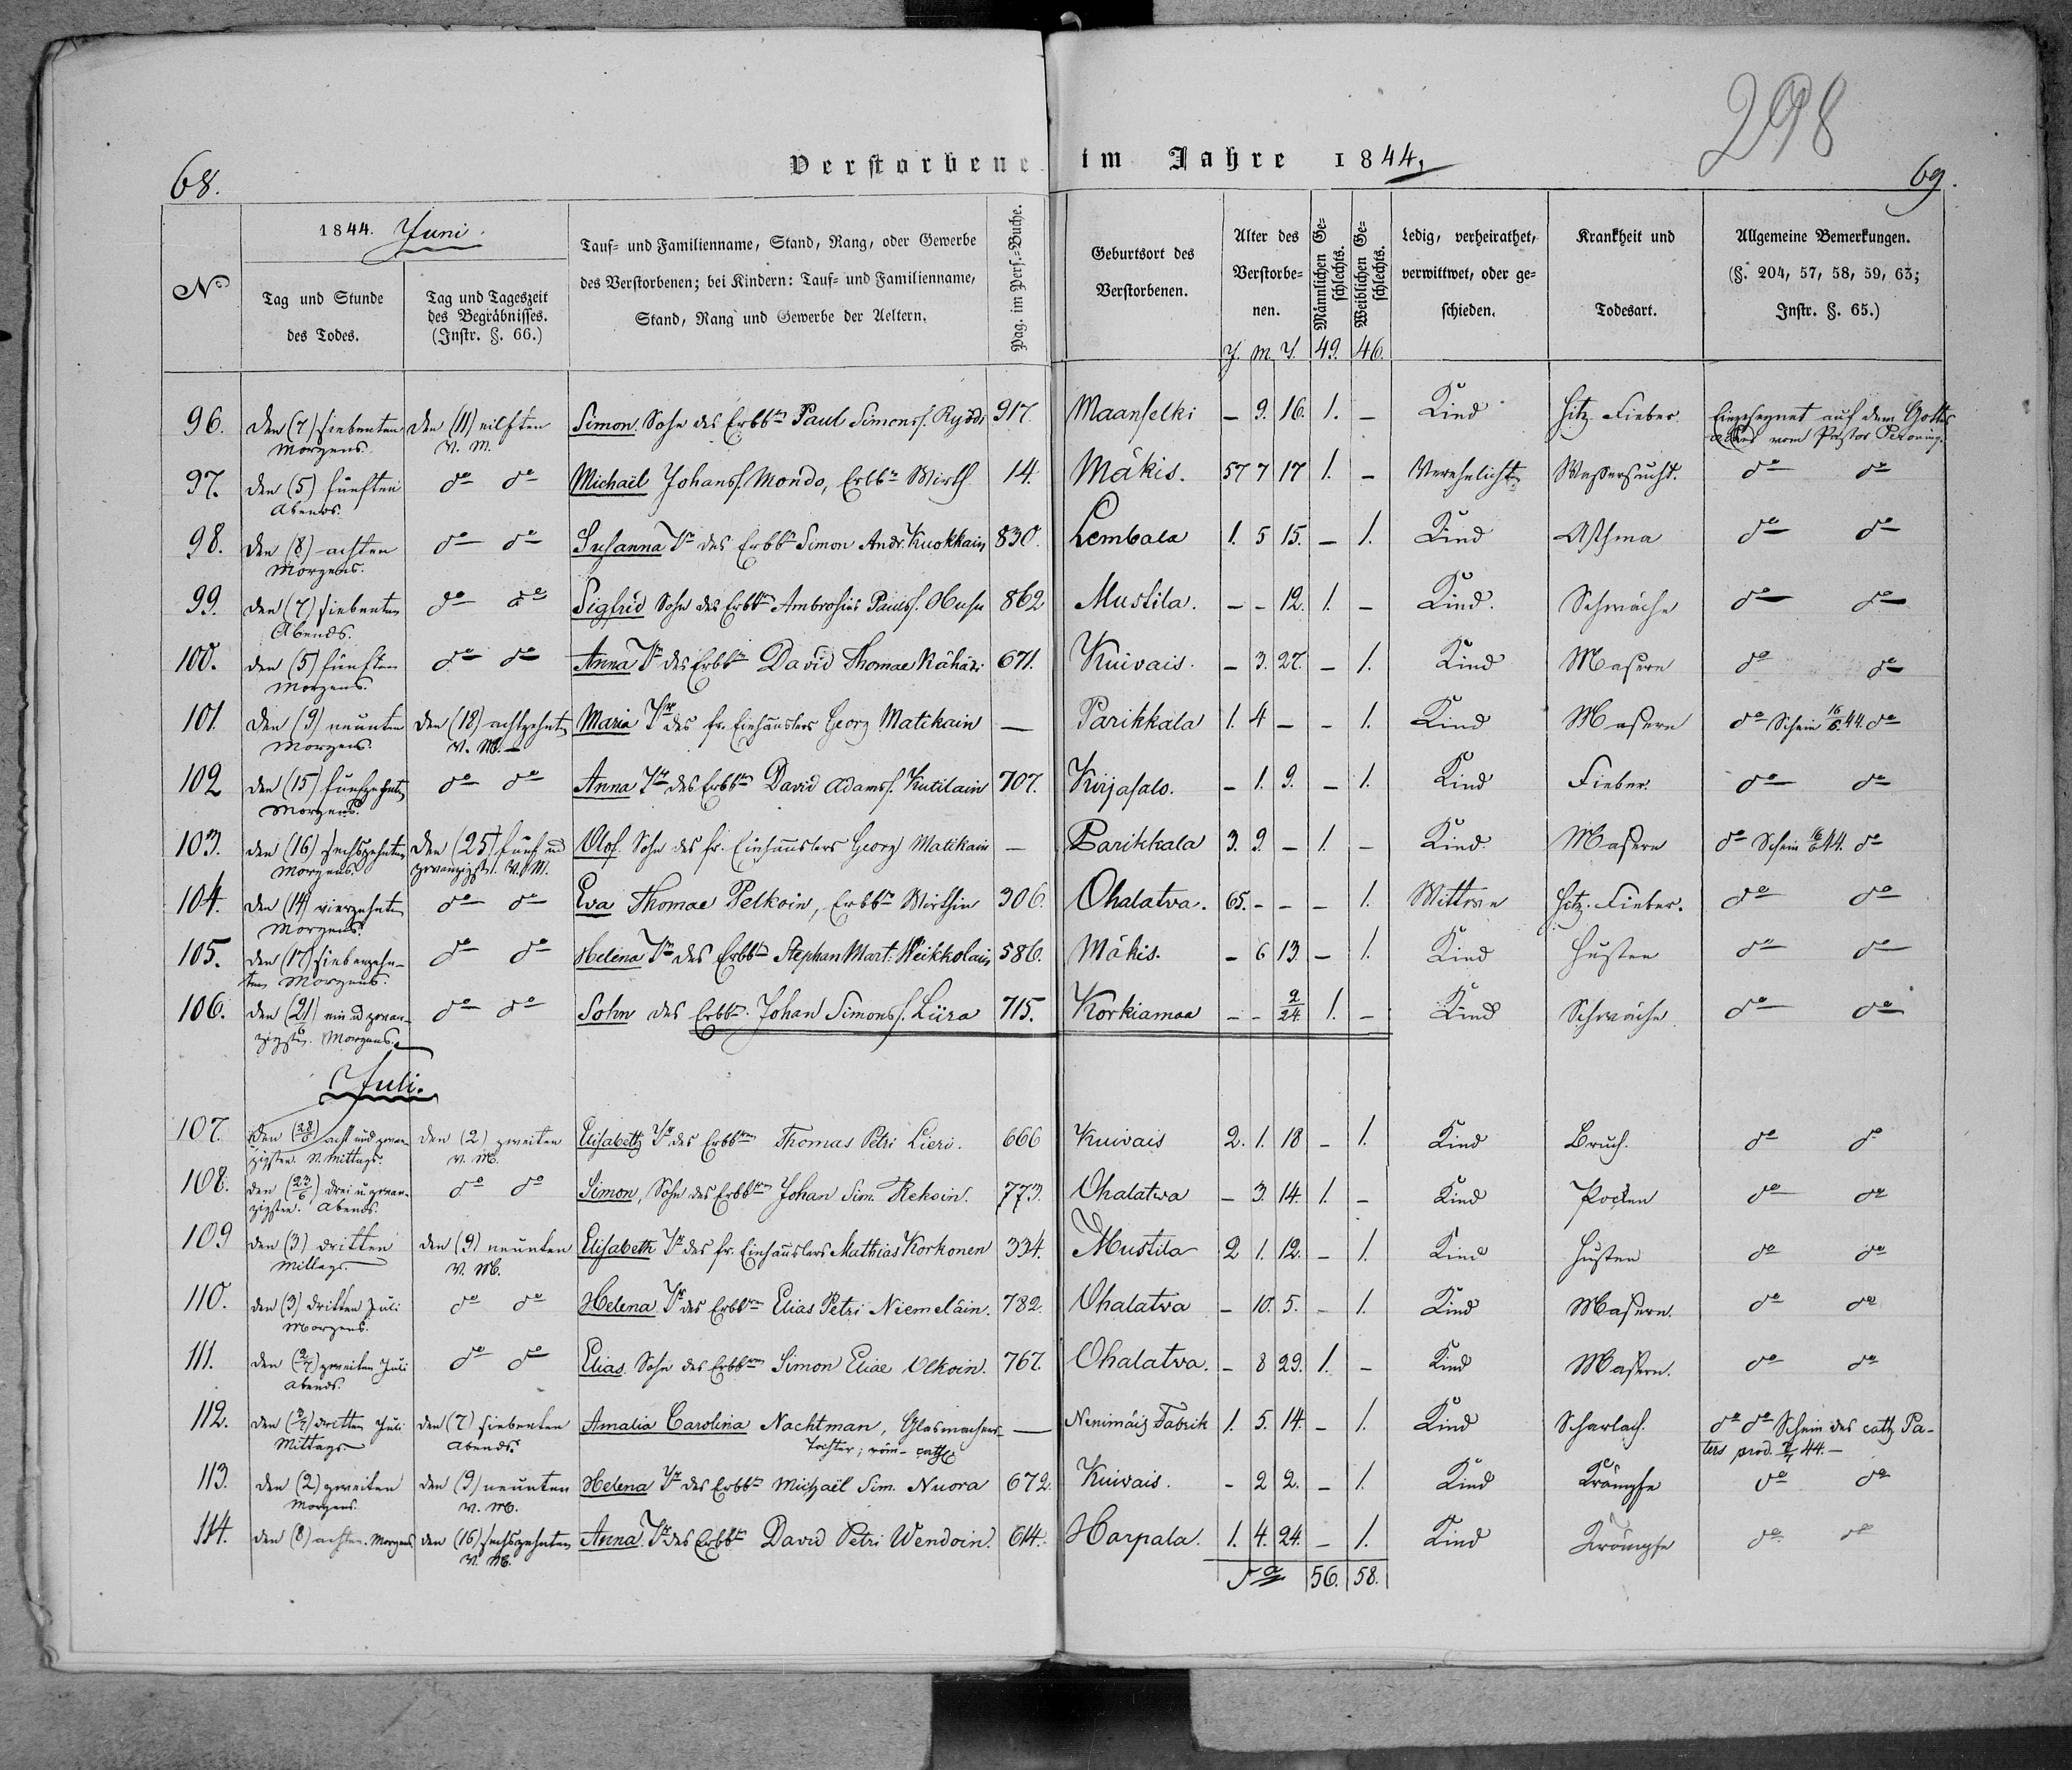 298
68.
Verstorbene im Jahre 1844,
69.
No
1844. Juni.
Tag und Stunde des Todes.
Tag und Tageszeit des Begräbnisses. (Instr. §. 66.)
Tauf- und Familienname, Stand, Rang, oder Gewerbe des Verstorbenen; bei Kindern: Tauf- und Familienname, Stand, Rang und Gewerbe der Aeltern.
Pag. im Pers.-Buche.
Geburtsort des Verstorbenen.
Alter des Verstorbenen.
J. M. T.
Männlichen Geschlechts. 49.
Weiblichen Geschlechts. 46.
Ledig, verheirathet, verwittwet, oder geschieden.
Krankheit und Todesart.
Allgemeine Bemerkungen. (§. 204, 57, 58, 59, 63; Instr. §. 65.)
96. Den (7) siebenten Morgens. Den (11) eilften V. M. Simon Sohn des Erbbn Paul Simonss. Ryödi 917. Maanselki – 9. 16. 1. – Kind Hitz. Fieber Eingesegnet auf dem Gottesacker vom Pastor
97. den (5) fünften Abends. do do Michail Johanss. Mondo, Erbbn Wirth 14. Mäkis. 57 7 17 1. – Verehelicht Wassersucht. do do
98. den (8) achten Morgens. do do Susanna Tr des Erbbn Simon Andr. Kuokkain 830. Lembala 1. 5 15. – 1. Kind Asthma do do
99. den (7) siebenten Abends. do do Sigfrid Sohn des Erbbn Ambrosius Paulss. Husu 862 Mustila. – – 12. 1. – Kind. Schwäche do do
100. den (5) fünften Morgens. do do Anna Tr des Erbbn David Thomae Kähäri 671. Kuivais. – 3. 27. – 1. Kind Masern do do
101. den (9) neunten Morgens. den (18) achtzehnten V. M. Maria Tr des fr. Einhäuslers Georg Matikain – Parikkala 1. 4 – – 1. Kind Masern do Schein 16/6. 44. do
102 den (15) fünfzehnten Morgens. do do Anna Tr des Erbbn David Adamss. Kutilain 707. Kirjasalo. – 1. 9. – 1. Kind Fieber. do do
103. den (16) sechszehnten Morgens. Den (25) fünf ud zwanzigst. V. M. Olof. Sohn des fr. Einhäuslers Georg Matikain – Parikkala 3. 9. – 1. – Kind. Masern do Schein 16/6 44. do
104. den (14) vierzehnten Morgens. do do Eva Thomae Pelkoin, Erbbn Wirthin 306. Ohalatva. 65. – – – 1. Wittwe Hitz. Fieber. do do
105. den (17) siebenzehnten Morgens. do do Helena Tr des Erbbn Stephan Mart. Weikkolain 586. Mäkis. – 6 13 – 1. Kind Husten do do
106. den (21) ein ud zwanzigsten. Morgens. do do Sohn des Erbbn. Johan Simonss. Liira 715. Korkiamaa – – 2/24. 1. – Kind Schwäche. do do
Juli.
107. Den (28/6) acht und zwanzigsten. N. Mittags. den (2) zweiten V. M. Elisabeth Tr des Erbbrn Thomas Petri Lieri. 666 Kuivais 2. 1. 18 – 1. Kind Bruch. do do
108. den (23/6) drei u zwanzigsten. Abends. do do Simon, Sohn des Erbbrn Johan Sim. Rekoin. 773. Ohalatwa – 3. 14. 1. – Kind Pocken do do
109 den (3) dritten Mittags. den (9) neunten V. M. Elisabeth Tr des fr. Einhäuslers Mathias Korkonen 334. Mustila 2 1. 12. – 1. Kind Husten do do
110. den (3) dritten Juli Morgens. do do Helena Tr des Erbbrn Elias Petri Niemeläin. 782. Ohalatva – 10. 5. – 1. Kind Masern. do do
111. den (2/7) zweiten Juli Abends. do do Elias. Sohn des Erbbrn Simon Eliae Olkoin. 767. Ohalatva. – 8 29. 1. – Kind Masern. do do
112. den (3/7) dritten Juli Mittags den (7) siebenten Abends. Amalia Carolina Nachtman, Glasmachers Tochter; röm-cath. – Nenimäis Fabrik 1. 5. 14. – 1. Kind Scharlach. do do Schein des cath Paters prod. 7/7 44. –
113. den (2) zweiten Morgens. den (9) neunten V. M. Helena Tr des Erbbn Michaël Sim. Nuora 672. Kuivais. – 2 2. – 1. Kind Krämpfe do do
114. den (8) achten. Morgens den (16) sechszehnten V. M. Anna. Tr des Erbbn David Petri Wendoin. 614. Harpala. 1. 4. 24. – 1. Kind Krämpfe do do
Sa 56. 58.